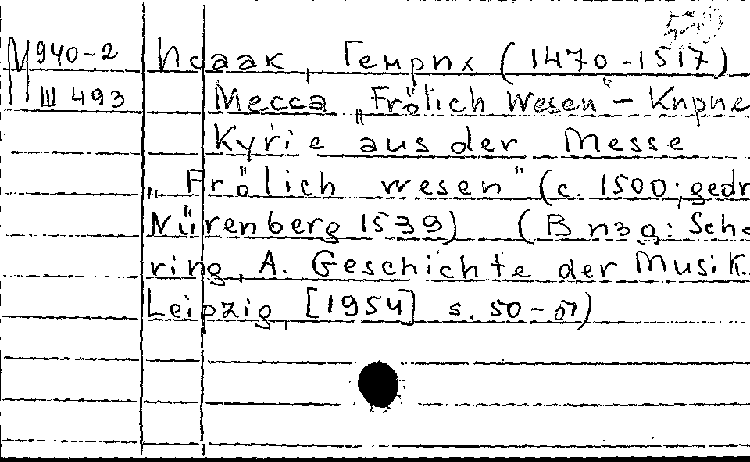 М940-2 Исаак, Генрих (1470-1517)
III 493 Месса „Frölich Wesen“ - Кирие
Kyrie aus der Messe
„Frölich wesen" (c. 1500; gedr
Nürenberg 1539) (В изд: Sche
ring, A. Geschichte der Musik.
Leipzig, [1954] s. 50-51)